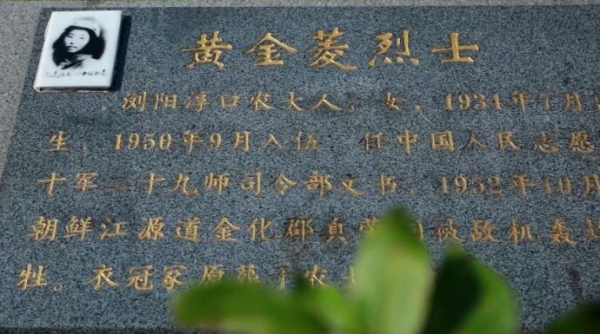 黄金菱烈士
浏阳淳口农大人，女，1934年7月
生，1950年9月入伍，任中国人民志愿
十军二十九师司令部文书，1952年10月
朝鲜江源道金化郡真 被敌机轰
牲。衣冠冢原葬于农大